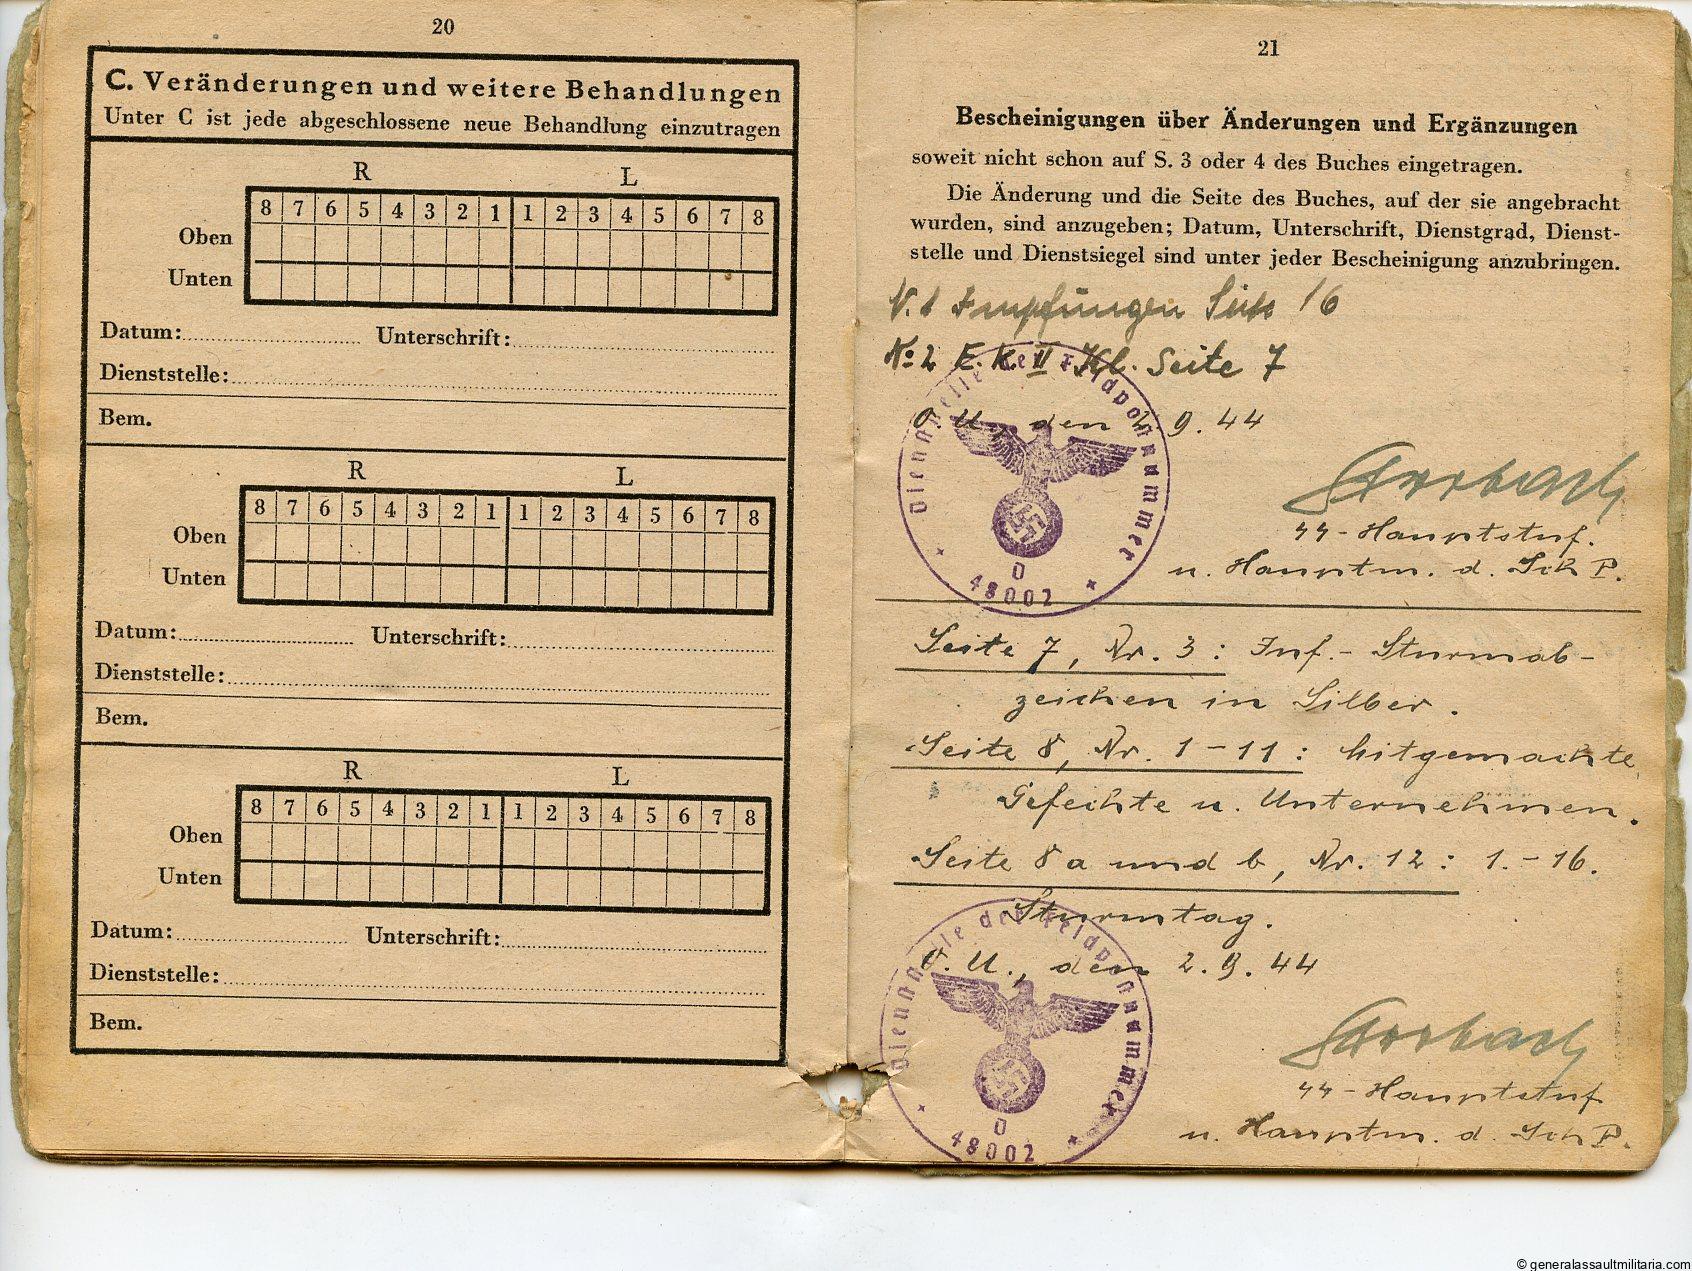 20
C. Veränderungen und weitere Behandlungen
Unter C ist jede abgeschlossene neue Behandlung einzutragen
R L
8 7 6 5 4 3 2 1 1 2 3 4 5 6 7 8
Oben
Unten
Datum: Unterschrift:
Dienststelle:
Bem.
R L
8 7 6 5 4 3 2 1 1 2 3 4 5 6 7 8
Oben
Unten
Datum: Unterschrift:
Dienststelle:
Bem.
R L
8 7 6 5 4 3 2 1 1 2 3 4 5 6 7 8
Oben
Unten
Datum: Unterschrift:
Dienststelle:
Bem.
21
Bescheinigungen über Änderungen und Ergänzungen
soweit nicht schon auf S. 3 oder 4 des Buches eingetragen.
Die Änderung und die Seite des Buches, auf der sie angebracht
wurden, sind anzugeben; Datum, Unterschrift, Dienstgrad, Dienst-
stelle und Dienstsiegel sind unter jeder Bescheinigung anzubringen.
N. 1 Impfungen Seite 16
No 2 E.K. II Kl. Seite 7
O.U., den 2.9.44
Dienststelle der Feldpostnummer
48002
SS-Hauptstuf.
u. Hauptm. d. Sch P.
Seite 7, Nr. 3: Inf.-Sturmab-
zeichen in Silber.
Seite 8, Nr. 1-11: Mitgemachte
Gefechte u. Unternehmen.
Seite 8a und b, Nr. 12: 1.-16.
Sturmtag.
O.U., den 2.9.44
Dienststelle der Feldpostnummer
48002
SS-Hauptstuf
u. Hauptm. d. Sch P.
© generalassaultmilitaria.com